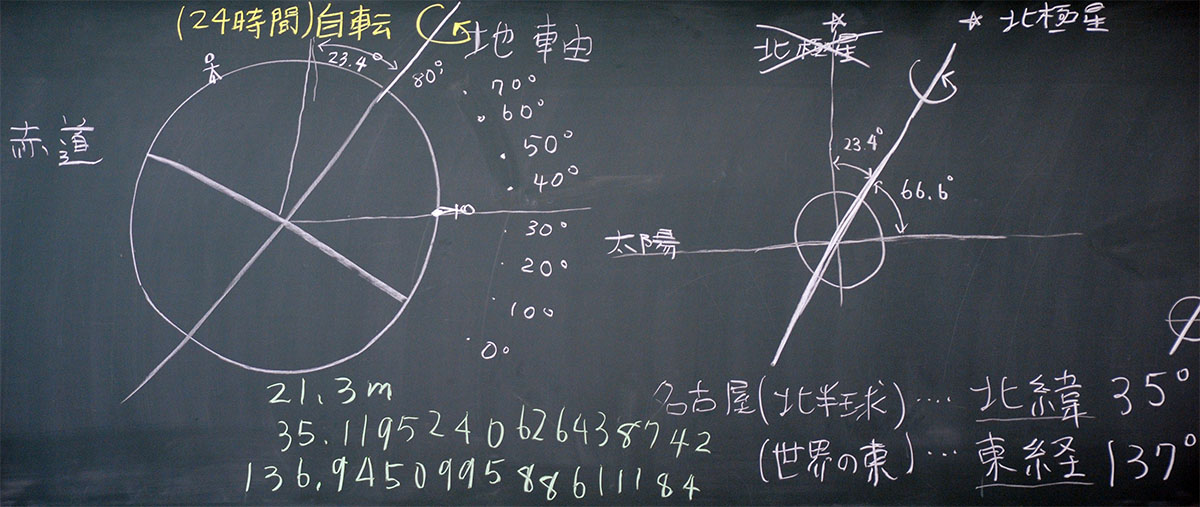 (24時間)自転
地軸
23.4°
80°
70°
60°
50°
40°
30°
20°
10°
0°
赤道
北極星
北極星
23.4°
66.6°
太陽
21.3m
35.1195240626438742
136.945099588611184
名古屋(北半球)…. 北緯 35°
(世界の東)… 東経 137°